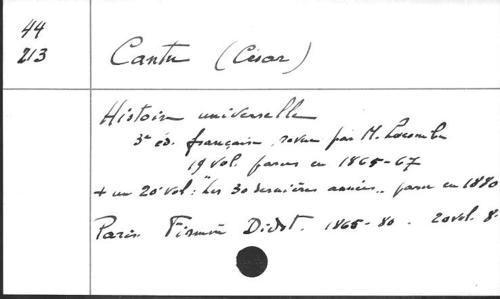 44
213
Cantu (César)
Histoire universelle
3e éd. française, revue par M. Lacombe
19 vol. parus en 1865-67
+ un 20e vol: "les 30 dernières années" paru en 1880
Paris Firmin Didot. 1865-80. 20 vol. 8-